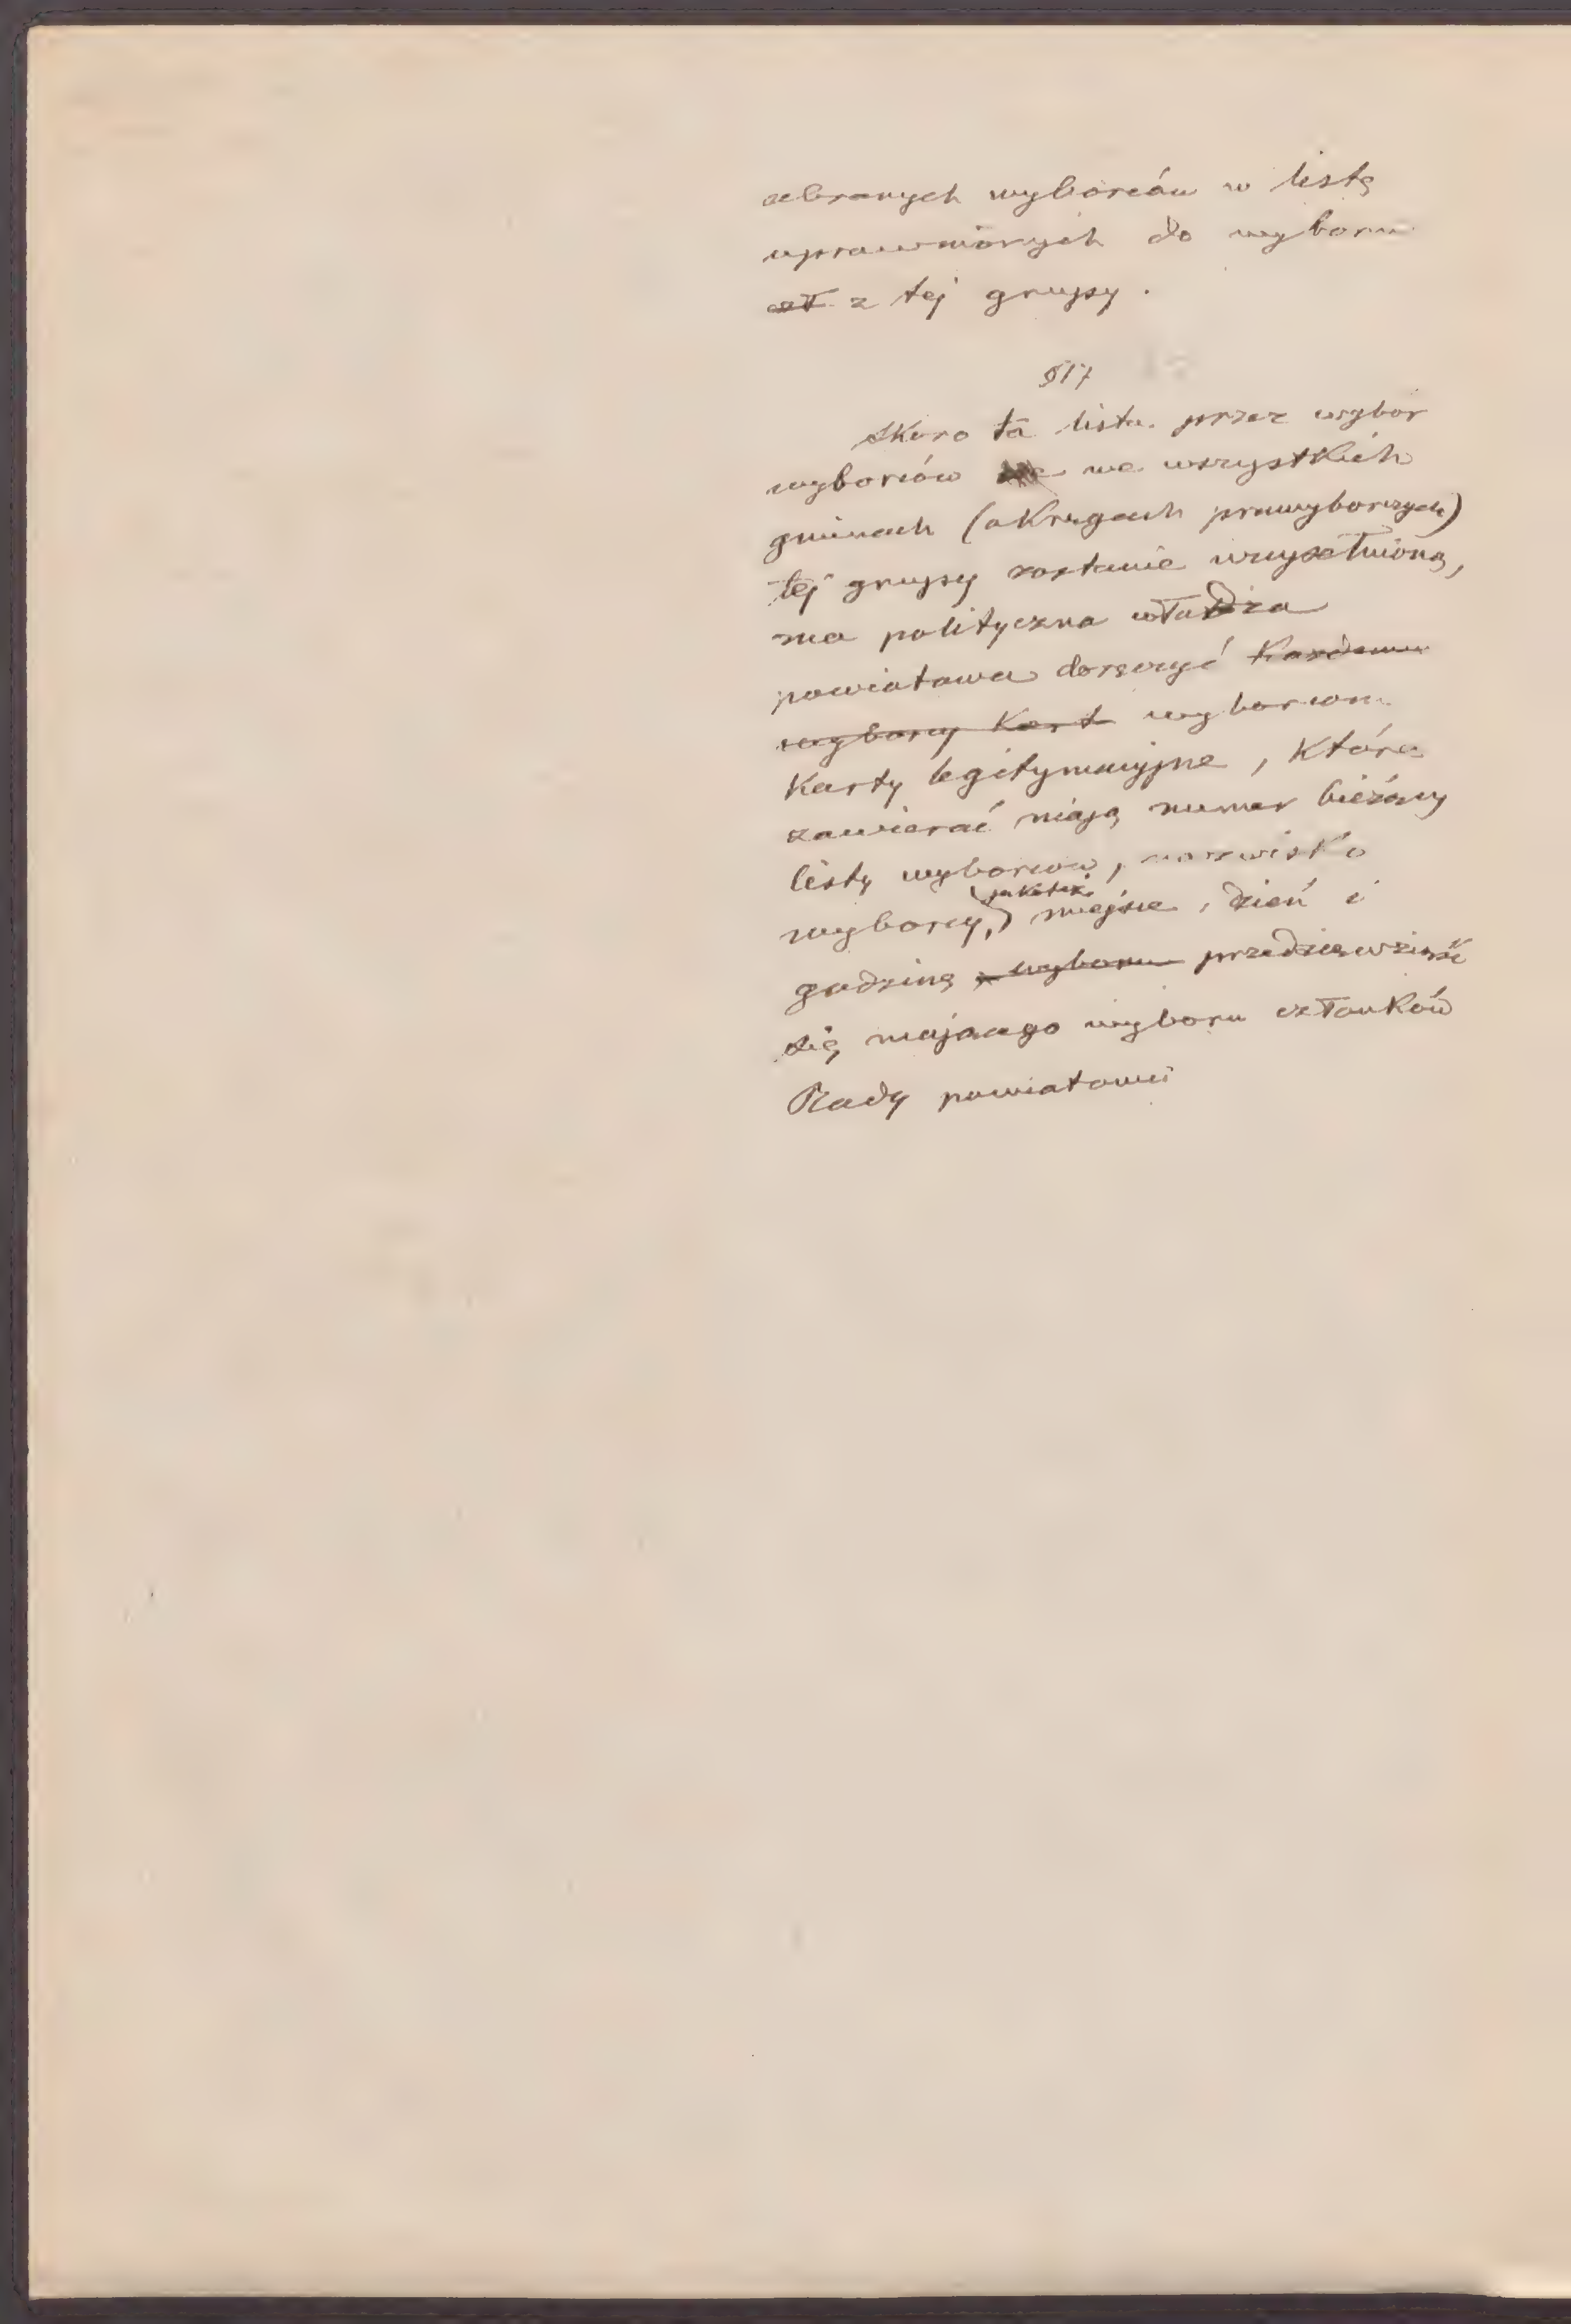 zebranych wyborców w listę
uprawnionych do wyboru
czł. z tej grupy.
§17
Skoro ta lista przez wybor
wyborców we wszystkich
gminach (okręgach prawyborczych)
tej grupy zostanie uzupełnioną,
ma polityczna władza
powiatowa doręczyć każdemu
wyborcy kart wyborcom
karty legitymacyjne, które
zawierać mają numer bieżący
listy wyborców, nazwisko
wyborcy, jakoteż miejsce, dzień i
godzinę wyboru przedsięwziąść
się mającego wyboru członków
Rady powiatowej